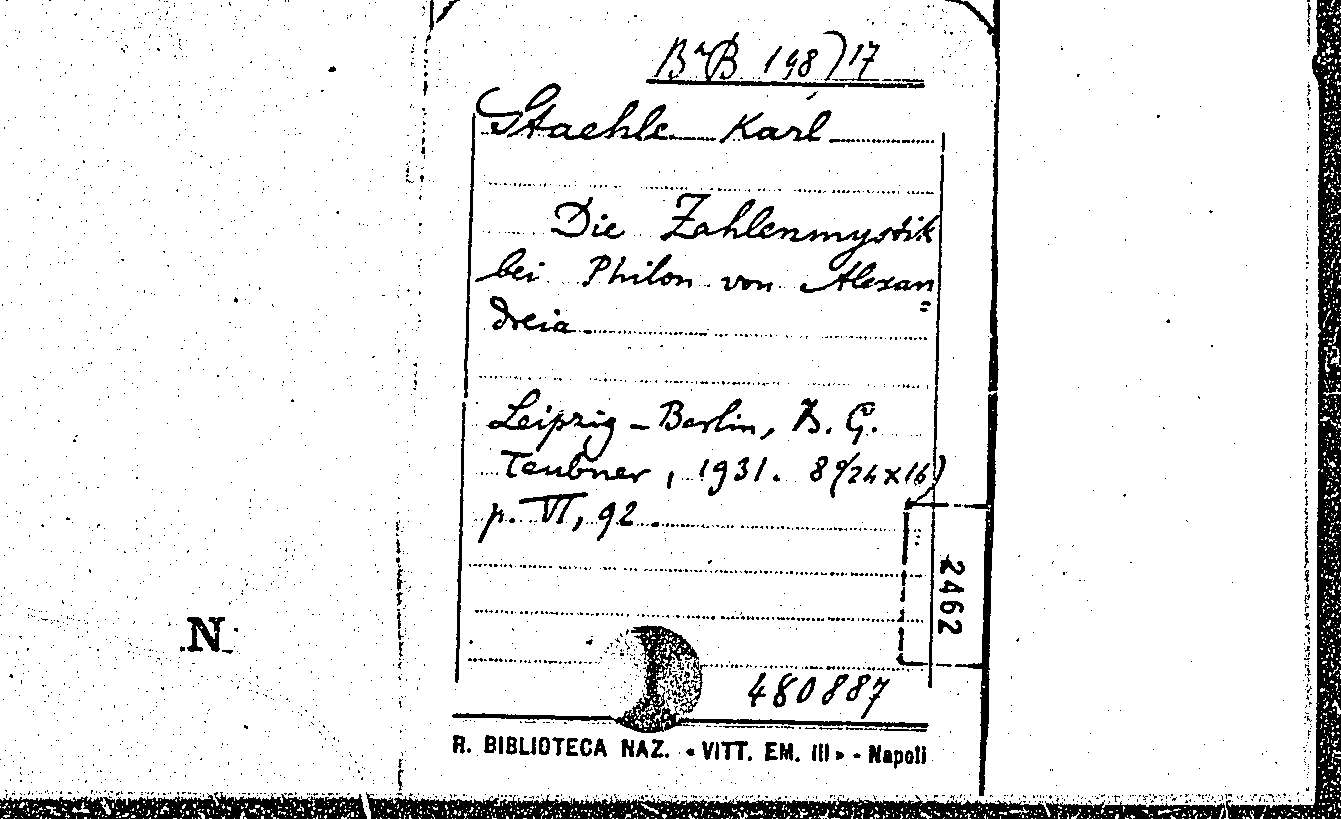 BªB 198)17
Staehle Karl
Die Zahlenmystik
bei Philon von Alexan=
dreia
Leipzig - Berlin, B. G.
Teubner, 1931. 8°(24x16)
p. VI, 92.
2462
N
480887
R. BIBLIOTECA NAZ. « VITT. EM. III » - Napoli